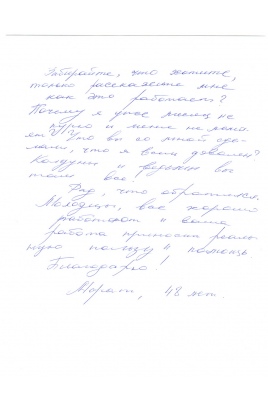 Убирайте, что хотите,
только расскажите мне
как это работает?
Почему я уже месяц не
курю и меня не
Что вы со мной сде-
лали, что я вами доволен?
Колдуны и
вас.
Рад, что обратился.
Молодцы, все хорошо
работают и ваша
работа приносит реаль-
ную пользу и помощь
Благодарю!
48 лет.